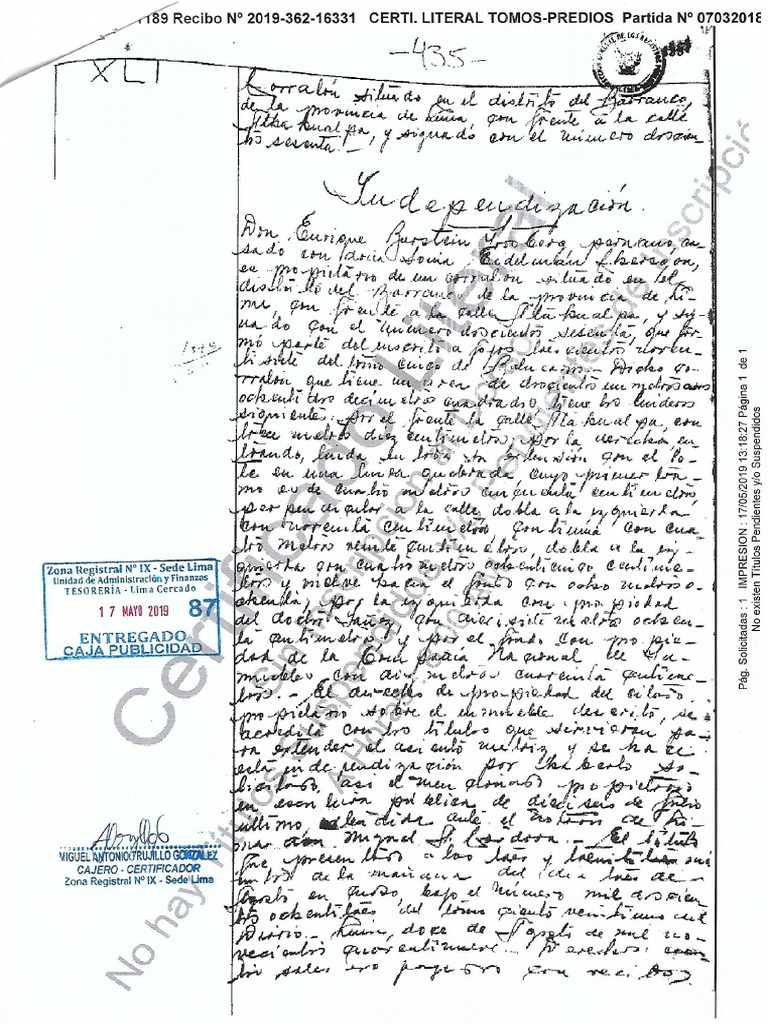 1189 Recibo Nº 2019-362-16331 CERTI. LITERAL TOMOS-PREDIOS Partida Nº 07032018
-435-
XLI
Corralón situado en el distrito del Barranco,
de la provincia de Lima, con frente á la calle
Atahualpa, y signado con el número doscien-
tos sesenta.-
Independización.
Don Enrique Burstein peruano, ca-
sado con doña Sonia
es propietario de un corralón situado en el
distrito del Barranco de la provincia de Li-
ma, con frente a la calle Atahualpa, y sig-
nado con el número doscientos sesenta, que for-
mó parte del inscrito a fojas trescientos noven-
tisiete del tomo cinco de Balnearios.- Dicho co-
rralón que tiene un área de doscientos un metros
ochentidos decímetros cuadrados, tiene los linderos
siguientes: por el frente la calle Atahualpa, con
trece metros diez centímetros, por la derecha en-
trando, linda en toda su extensión con el lo-
te en una línea quebrada, cuyo primer tra-
mo es de cuatro metros cincuenta centímetros,
perpendicular a la calle, dobla a la izquierda
con noventa centímetros, continúa con cua-
tro metros veinte centímetros, dobla a la iz-
quierda con cuatro metros ochenticinco centíme-
tros y vuelve hacia el fondo con ocho metros o-
chenta; por la izquierda con propiedad
del doctor con diecisiete metros ochen-
ta centímetros; y por el fondo con propie-
dad de la Compañía Nacional de In-
muebles con diez metros cuarenta centíme-
tros.- El derecho de propiedad del citado
propietario sobre el inmueble descrito, se
acredita con los títulos que sirvieron pa-
ra extender el asiento matriz y se hace
esta independización por haberlo so-
licitado, así el mencionado propietario
en escritura pública de dieciseis de Julio
último, extendida ante el notario de
don Miguel - El título
fue presentado a las tres y treinticinco mi-
nutos de la mañana del día tres de A-
gosto en curso, bajo el número mil doscien-
tos ochentitres del tomo ciento veintiuno del
Diario.- Lima, doce de Agosto de mil no-
vecientos cuarentinueve.- Derechos:
soles oro con recibo
Zona Registral Nº IX - Sede Lima
Unidad de Administración y Finanzas
TESORERÍA - Lima Cercado
17 MAYO 2019 87
ENTREGADO
CAJA PUBLICIDAD
MIGUEL ANTONIO TRUJILLO GONZALEZ
CAJERO - CERTIFICADOR
Zona Registral Nº IX - Sede Lima
Certificado Literal
Pág. Solicitadas : 1 IMPRESION : 17/05/2019 13:18:27 Página 1 de 1
No existen Titulos Pendientes y/o Suspendidos